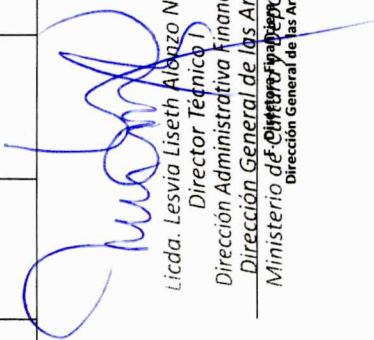 Licda. Lesvia Liseth Alonzo N
Director Técnico I
Dirección Administrativa Finan
Dirección General de las Ar
Ministerio de Cultura y Dep
Dirección General de las Ar